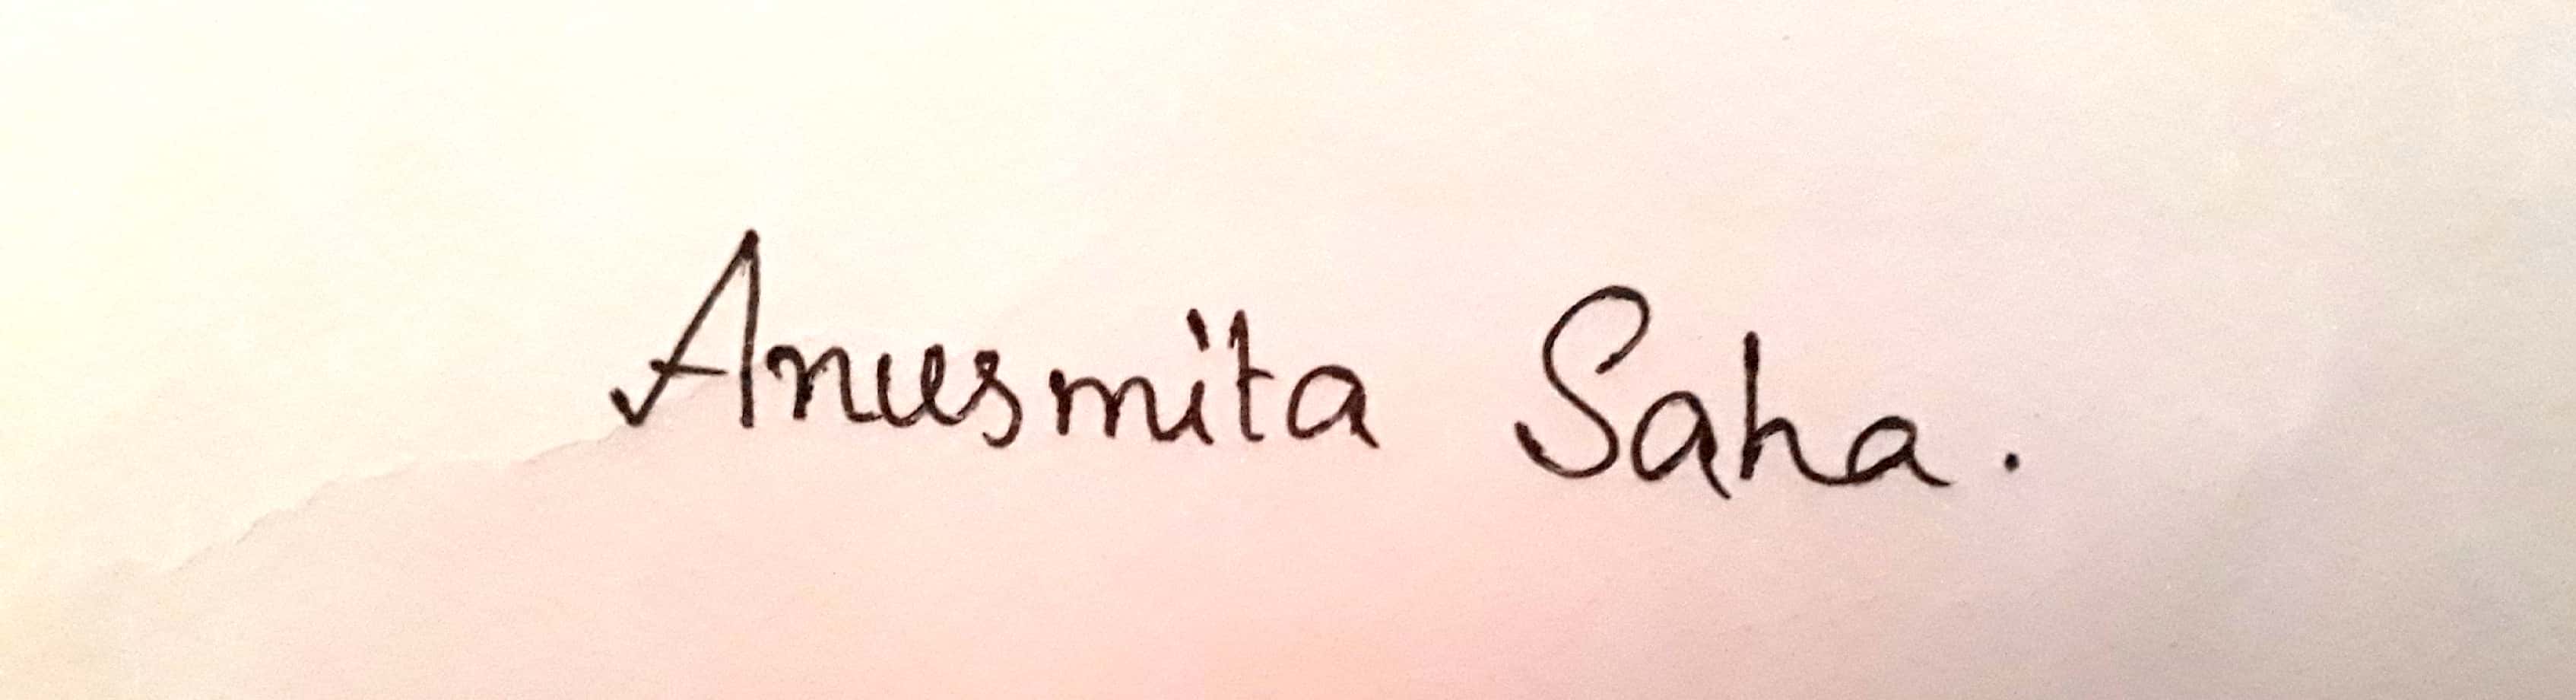 Anusmita Saha.